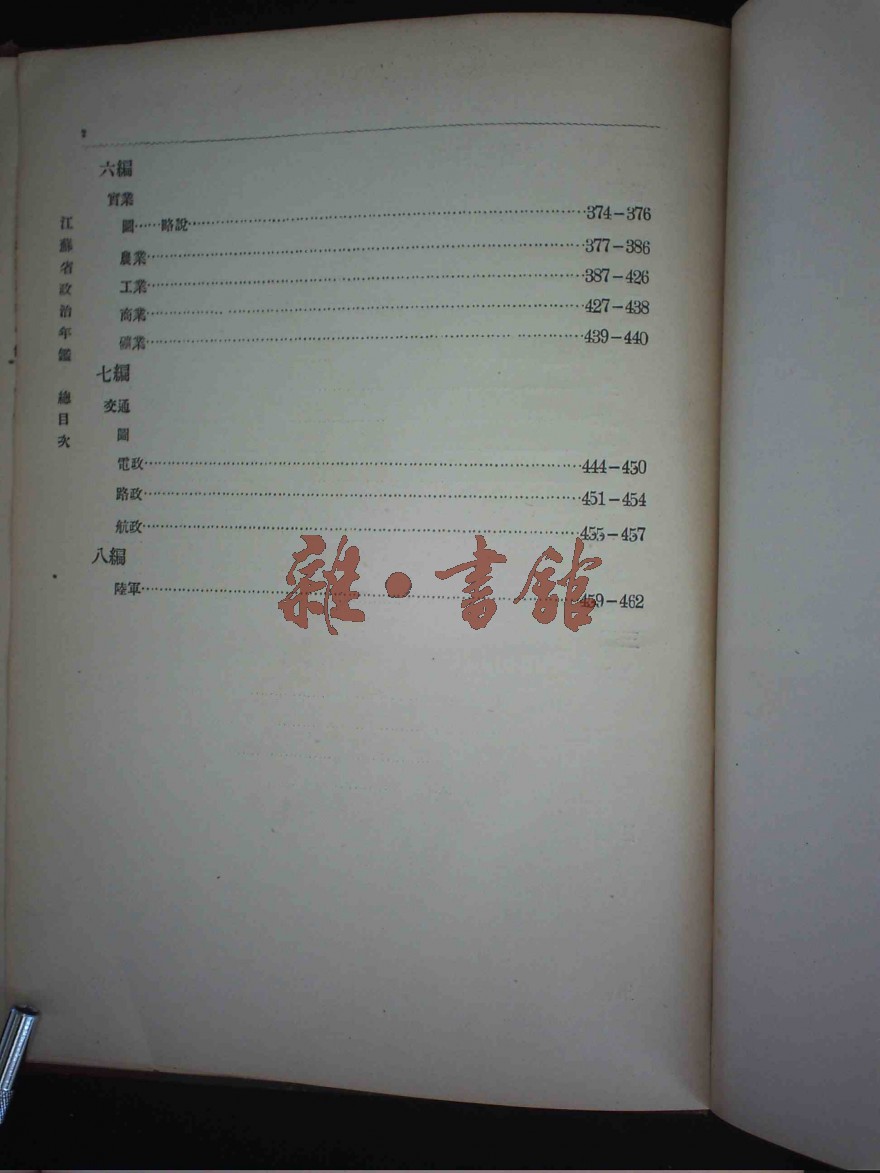 2
六編
實業
圖……略說……374—376
農業……377—386
工業……387—426
商業……427—438
礦業……439—440
七編
交通
圖
電政……444—450
路政……451—454
航政……455—457
八編
陸軍……459—462
江蘇省政治年鑑 總目次
雜·書館